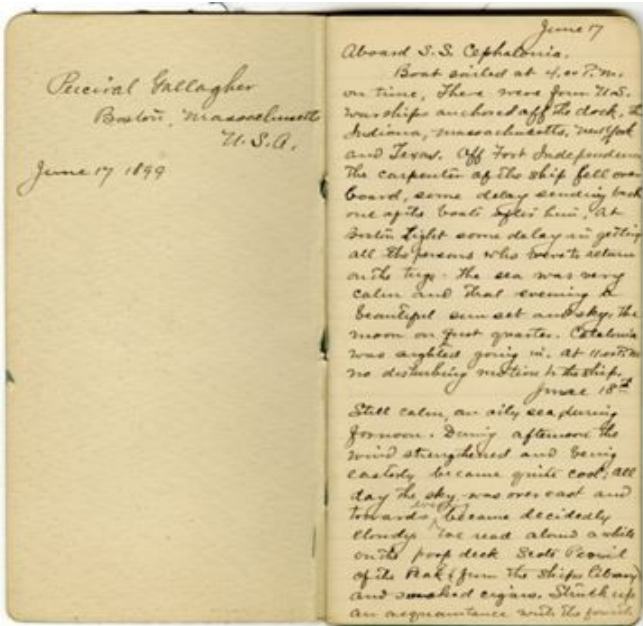 Percival Gallagher
Boston, Massachusetts
U.S.A.
June 17 1899
June 17
Aboard S.S. Cephalonia.
Boat sailed at 4.00 P.M.
on time, There were four U.S.
war ships anchored off the dock, the
Indiana, Massachusetts, New York
and Texas. Off Fort Independence
the carpenter of the ship fell over
board, some delay sending back
one of the boats after him. At
Boston Light some delay in getting
all the persons who were to return
on the tugs. The sea was very
calm and that evening a
beautiful sun set and sky, the
moon on first quarter. Catalonia
was sighted going in. At 11.00 P.M.
no disturbing motion to the ship.
June 18th
Still calm, an oily sea during
fornoon. During afternoon the
wind strengthened and being
easterly became quite cool; all
day the sky was overcast and
towards evening became decidedly
cloudy. We read aloud a while
on the poop deck Scotts Peveril
of the Peak (from the ships library)
and smoked cigars. Struck up
an acquaintance with the